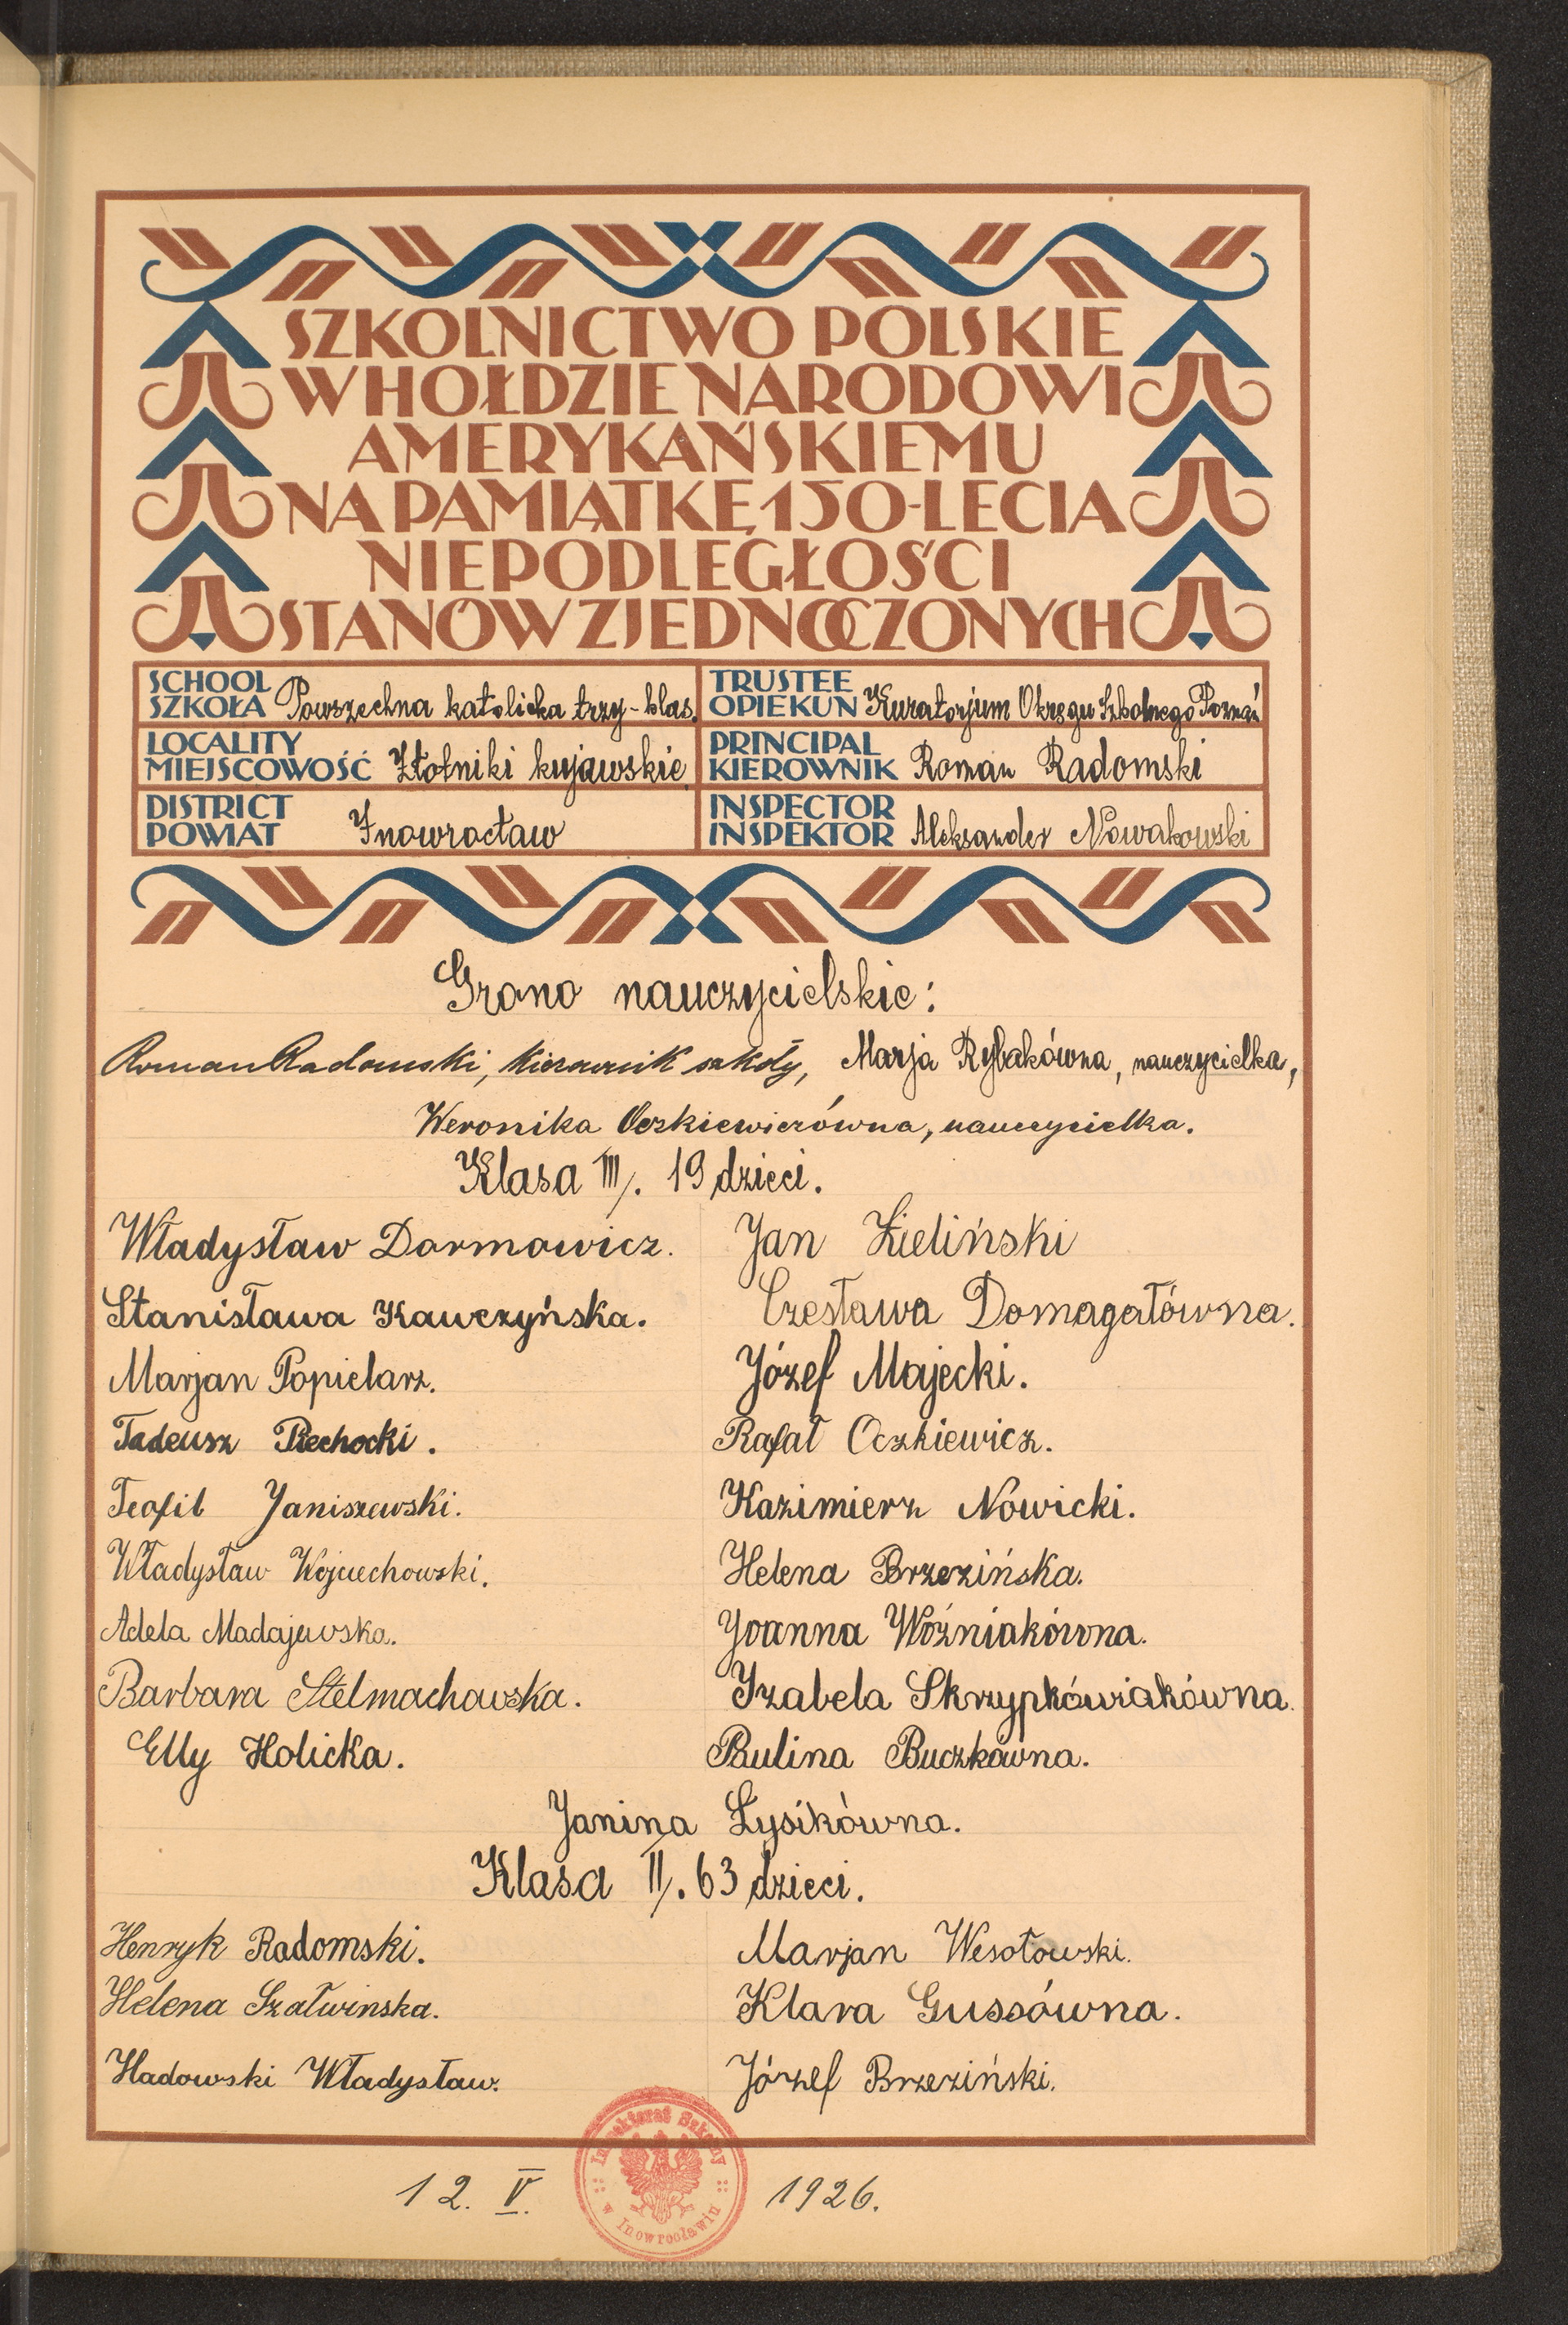 SZKOLNICTWO POLSKIE
W HOŁDZIE NARODOWI
AMERYKAŃSKIEMU
NA PAMIĄTKĘ 150-LECIA
NIEPODLEGŁOŚCI
STANÓW ZJEDNOCZONYCH
SCHOOL
SZKOŁA Powszechna katolicka trzy-klas.
TRUSTEE
OPIEKUN Kuratorjum Okręgu Szkolnego Poznań
LOCALITY
MIEJSCOWOŚĆ Złotniki kujawskie
PRINCIPAL
KIEROWNIK Roman Radomski
DISTRICT
POWIAT Inowrocław
INSPECTOR
INSPEKTOR Aleksander Nowakowski
Grono nauczycielskie:
Roman Radomski, kierownik szkoły, Marja Rybakówna, nauczycielka,
Weronika Oczkiewiczówna, nauczycielka.
Klasa III/. 19 dzieci.
Władysław Darmowicz. Jan Zieliński
Stanisława Kawczyńska. Czesława Domagałówna.
Marjan Popielarz. Józef Majecki.
Tadeusz Piechocki. Rafał Oczkiewicz.
Teofil Janiszewski. Kazimierz Nowicki.
Władysław Wojciechowski. Helena Brzezińska.
Adela Madajewska. Joanna Woźniakówna.
Barbara Stelmachowska. Izabela Skrzypkówiakówna.
Elly Holicka. Paulina Buczkówna.
Janina Łysikówna.
Klasa II/. 63 dzieci.
Henryk Radomski. Marjan Wesołowski.
Helena Szałwinska. Klara Gussówna.
Hadowski Władysław. Józef Brzeziński.
Inspektorat Szkolny
w Inowrocławiu
12. V. 1926.